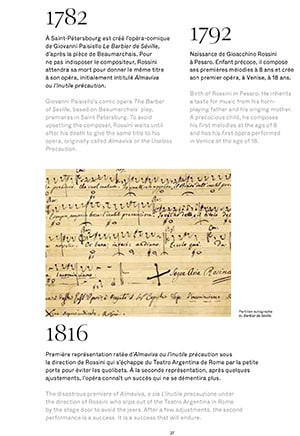 1782
À Saint-Pétersbourg est créé l'opéra-comique
de Giovanni Paisiello Le Barbier de Séville,
d'après la pièce de Beaumarchais. Pour
ne pas indisposer le compositeur, Rossini
attendra sa mort pour donner le même titre
à son opéra, initialement intitulé Almaviva
ou l'inutile précaution.
Giovanni Paisiello's comic opera The Barber
of Seville, based on Beaumarchais' play,
premieres in Saint Petersburg. To avoid
upsetting the composer, Rossini waits until
after his death to give the same title to his
opera, originally called Almaviva or the Useless
Precaution.
1792
Naissance de Gioacchino Rossini
à Pesaro. Enfant précoce, il compose
ses premières mélodies à 8 ans et crée son
premier opéra, à Venise, à 18 ans.
Birth of Rossini in Pesaro. He inherits
a taste for music from his horn-
playing father and his singing mother.
A precocious child, he composes
his first melodies at the age of 8
and has his first opera performed
in Venice at the age of 18.
Partition autographe
du Barbier de Séville
1816
Première représentation ratée d'Almaviva ou l'inutile précaution sous
la direction de Rossini qui s'échappe du Teatro Argentina de Rome par la petite
porte pour éviter les quolibets. À la seconde représentation, après quelques
ajustements, l'opéra connaît un succès qui ne se démentira plus.
The disastrous premiere of Almaviva, o sia L'inutile precauzione under
the direction of Rossini who slips out of the Teatro Argentina in Rome
by the stage door to avoid the jeers. After a few adjustments, the second
performance is a success. It is a success that will endure.
37